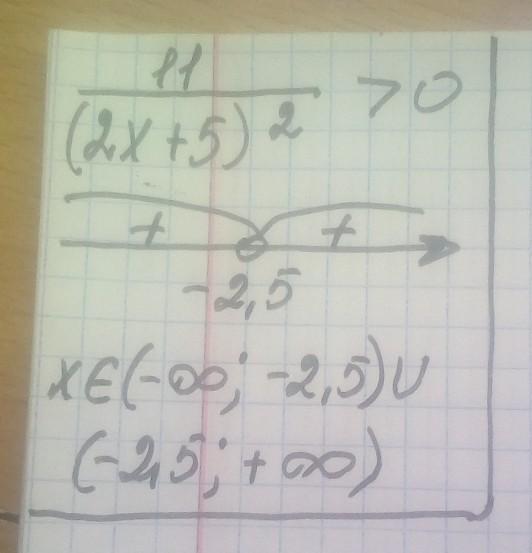 11
(2x+5)² > 0
+ +
-2,5
x∈(-∞; -2,5)∪
(-2,5; +∞)